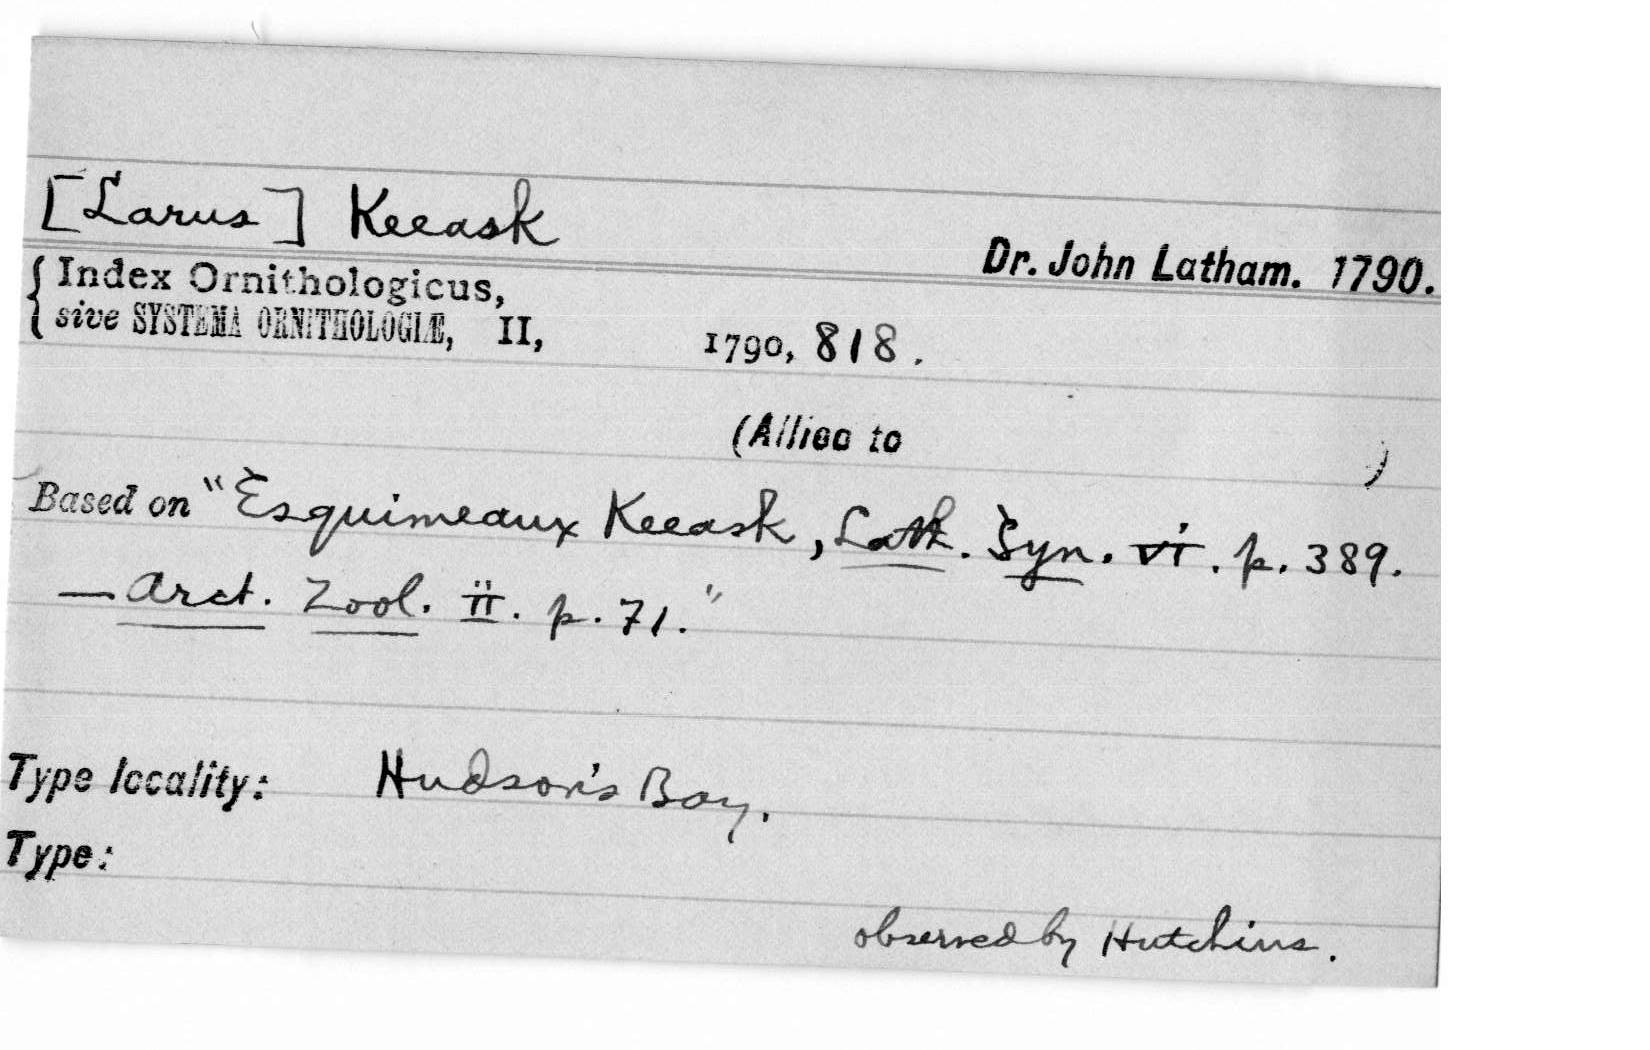 [Larus] Keeask
Dr. John Latham. 1790.
{ Index Ornithologicus,
sive SYSTEMA ORNITHOLOGIÆ, II, 1790, 818.
(Allied to )
Based on "Esquimeaux Keeask, Lath. Syn. vi. p. 389.
— Arct. Zool. ii. p. 71."
Type locality: Hudson's Bay.
Type:
observed by Hutchins.